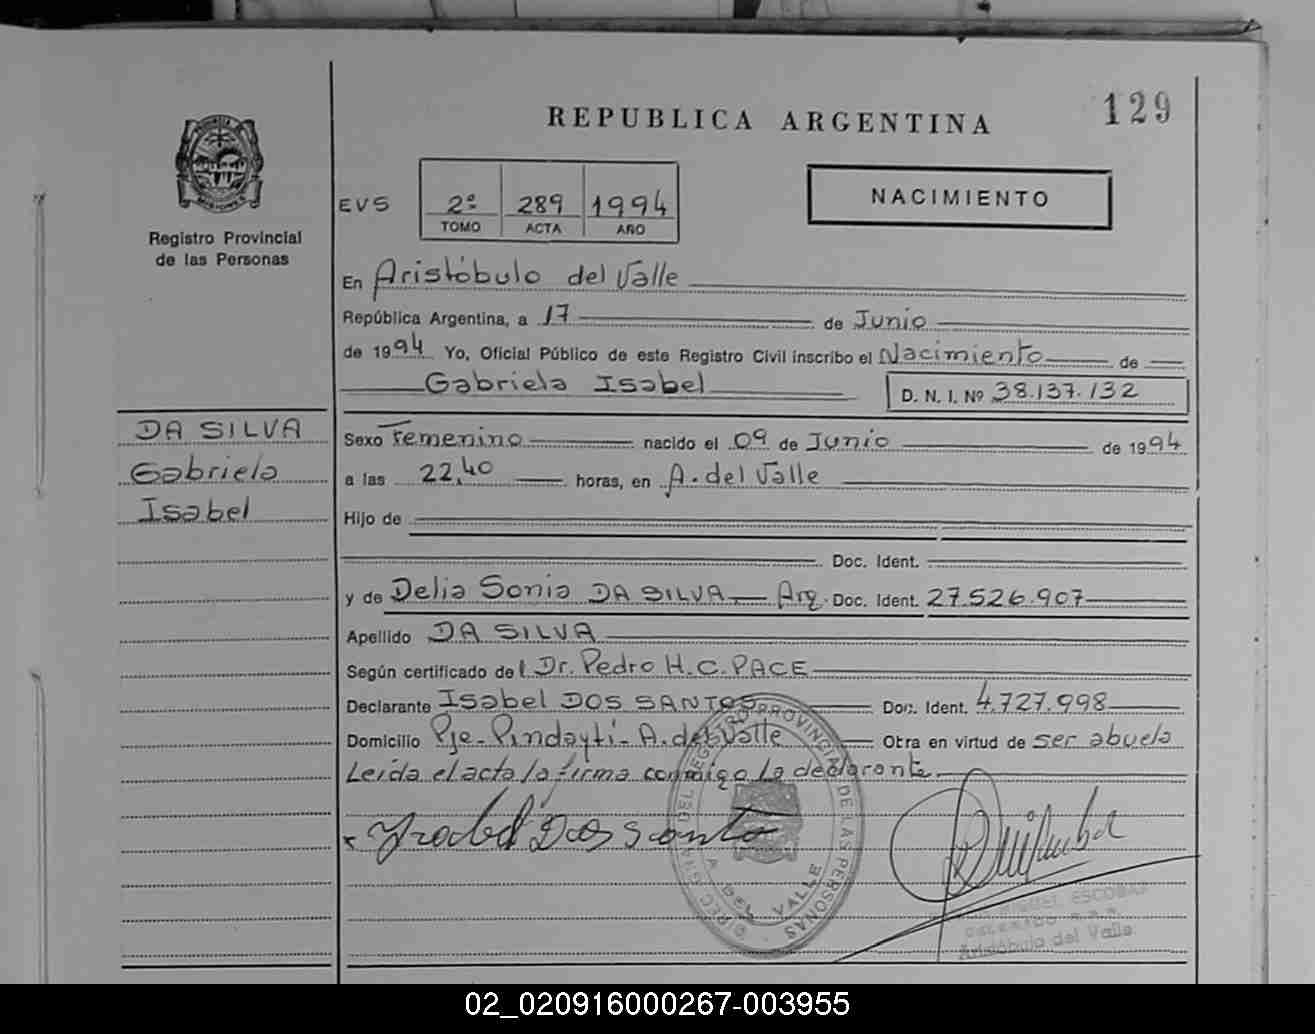 129
REPUBLICA ARGENTINA
PROVINCIA
MISIONES
Registro Provincial
de las Personas
EVS
2º 289 1994
TOMO ACTA AÑO
NACIMIENTO
En Aristóbulo del Valle
República Argentina, a 17 de Junio
de 1994 Yo, Oficial Público de este Registro Civil inscribo el Nacimiento de
Gabriela Isabel D. N. I. Nº 38.137.132
DA SILVA
Gabriela
Isabel
Sexo Femenino nacido el 09 de Junio de 1994
a las 22,40 horas, en A. del Valle
Hijo de
Doc. Ident.
y de Delia Sonia DA SILVA Arg. Doc. Ident. 27.526.907
Apellido DA SILVA
Según certificado del Dr. Pedro H. C. PACE
Declarante Isabel DOS SANTOS Doc. Ident. 4.727.998
Domicilio Pje. Pindaytí - A. del Valle Obra en virtud de ser abuela
Leída el acta la firma conmigo la declarante.
x Ysabel Dos santo
DEL REGISTRO PROVINCIAL DE LAS PERSONAS
A. DEL VALLE
ESCOBAR
Aristóbulo del Valle
02_020916000267-003955